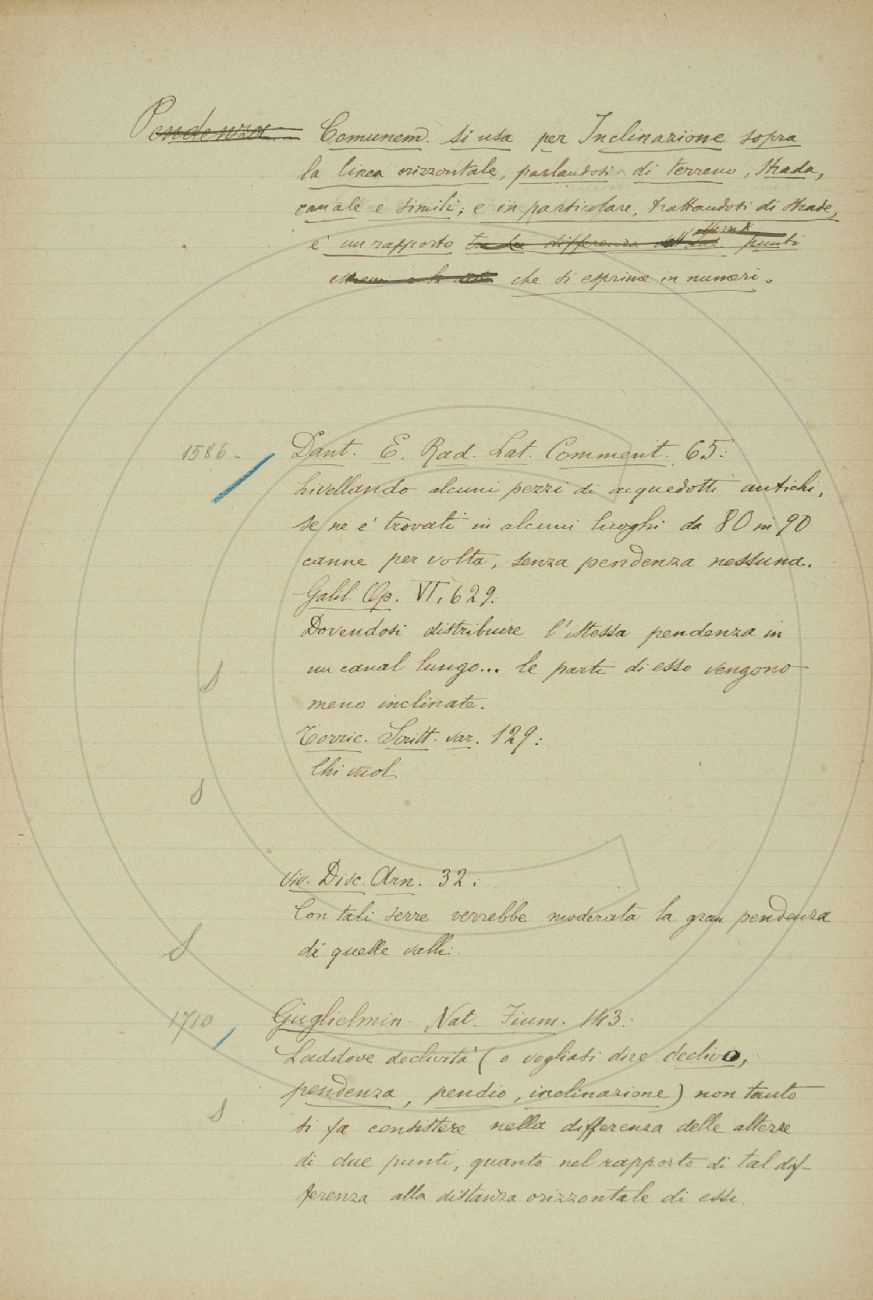 Pendenza Comunem. si usa per Inclinazione sopra
la linea orizzontale, parlandosi di terreno, strada,
canale e simili; e in particolare, trattandosi di strade,
è un rapporto tra la differenza dell' punti
estremi e la che si esprime in numeri.
1586 - Dant. E. Rad. Lat. Comment. 65:
Livellando alcuni pezzi di acquedotti antichi,
se ne è trovati in alcuni luoghi da 80 in 90
canne per volta, senza pendenza nessuna.
Galil. Op. VI, 629:
Dovendosi distribuire l'istessa pendenza in
un canal lungo... le parti di esso vengono
S
meno inclinate.
Torric. Scritt. var. 129:
Chi vuol
S
Viv. Disc. Arn. 32:
Con tali serre verrebbe moderata la gran pendenza
S di quelle valli.
1710 Guglielmin. Nat. Fium. 143:
Laddove declività (o vogliasi dire declivo,
pendenza, pendio, inclinazione) non tanto
S si fa consistere nella differenza delle altezze
di due punti, quanto nel rapporto di tal dif-
ferenza alla distanza orizzontale di essi.